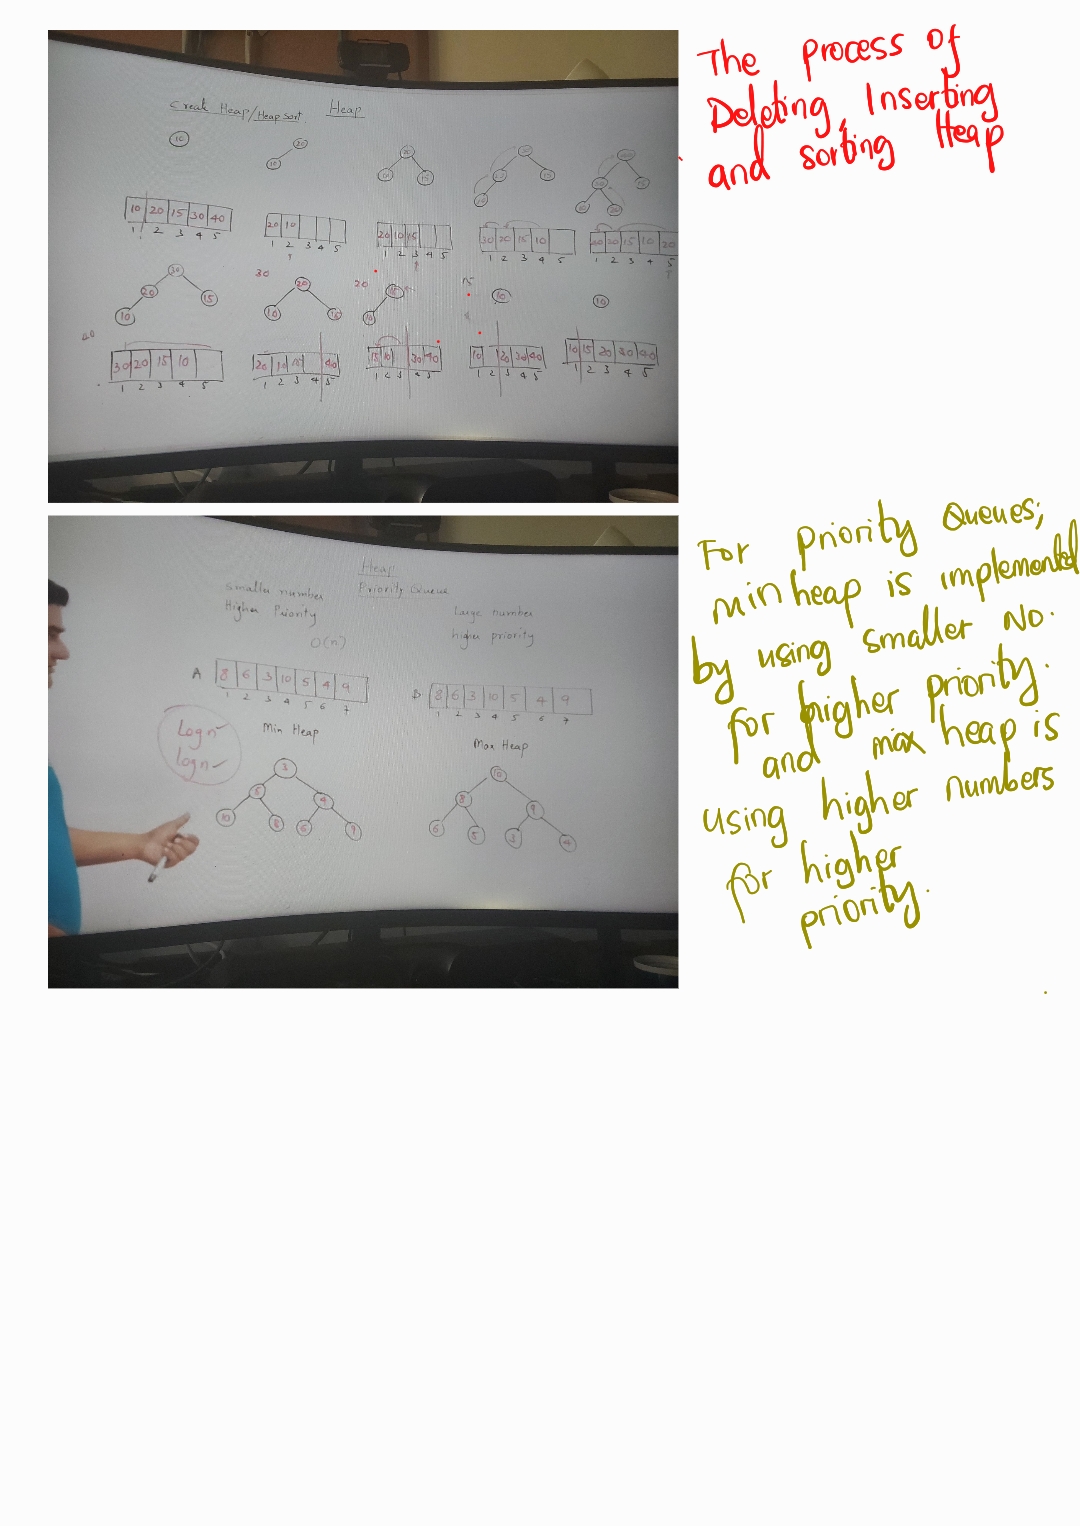 Creat Heap/Heap sort Heap
10
20
10
20
10 15
30
20 15
10
40
30 15
10 20
10 20 15 30 40
1 2 3 4 5
20 10
1 2 3 4 5
20 10 15
1 2 3 4 5
30 20 15 10
1 2 3 4 5
40 30 15 10 20
1 2 3 4 5
30
20 15
10
30
20
10 15
20
15
10
15
10
10
40
30 20 15 10
1 2 3 4 5
20 10 15 40
1 2 3 4 5
15 10 30 40
1 2 3 4 5
10 20 30 40
1 2 3 4 5
10 15 20 30 40
1 2 3 4 5
The process of
Deleting, Inserting
and sorting Heap
Heap
Priority Queue
Smaller number
Higher Priority
Large number
higher priority
O(n)
A 8 6 3 10 5 4 9
1 2 3 4 5 6 7
B 8 6 3 10 5 4 9
1 2 3 4 5 6 7
Log n
log n
Min Heap
3
5 4
10 8 6 9
Max Heap
10
8 9
6 5 3 4
For Priority Queues;
min heap is implemented
by using smaller No.
for higher priority.
and max heap is
using higher numbers
for higher
priority.